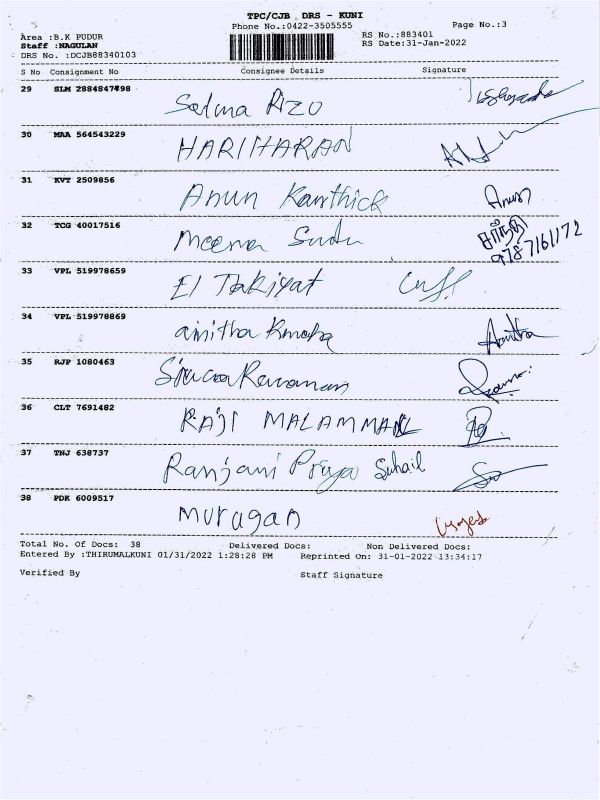 TPC/CJB DRS - KUNI
Phone No.:0422-3505555
Page No.:3
Area :B.K PUDUR
RS No.:883401
Staff :NAGULAN
RS Date:31-Jan-2022
DRS No. :DCJB88340103
S No Consignment No Consignee Details Signature
29 SLM 2884847898 Salma Rizo
30 MAA 564543229 HARIHARAN
31 KVT 2509856 Arun Karthick Arun
32 TCG 40017516 Meena Sudu
9787161172
33 VPL 519978659 El Takiyat
34 VPL 519978869 anitha Anitha
35 RJP 1080463
36 CLT 7691482 RAJI MALAMMAL
37 TNJ 638737 Ranjani Priya Suhail
38 PDK 6009517 Murugan
Total No. Of Docs: 38 Delivered Docs: Non Delivered Docs:
Entered By :THIRUMALKUNI 01/31/2022 1:28:28 PM Reprinted On: 31-01-2022 13:34:17
Verified By Staff Signature